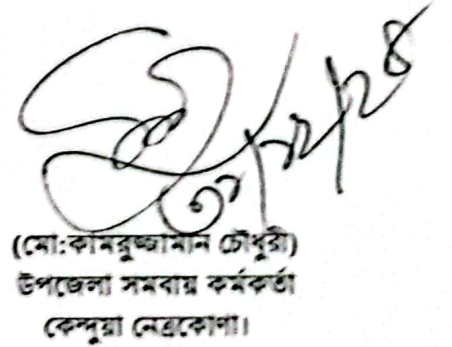 (মো:কামরুজ্জামান চৌধুরী)
উপজেলা সমবায় কর্মকর্তা
কেন্দুয়া নেত্রকোণা।